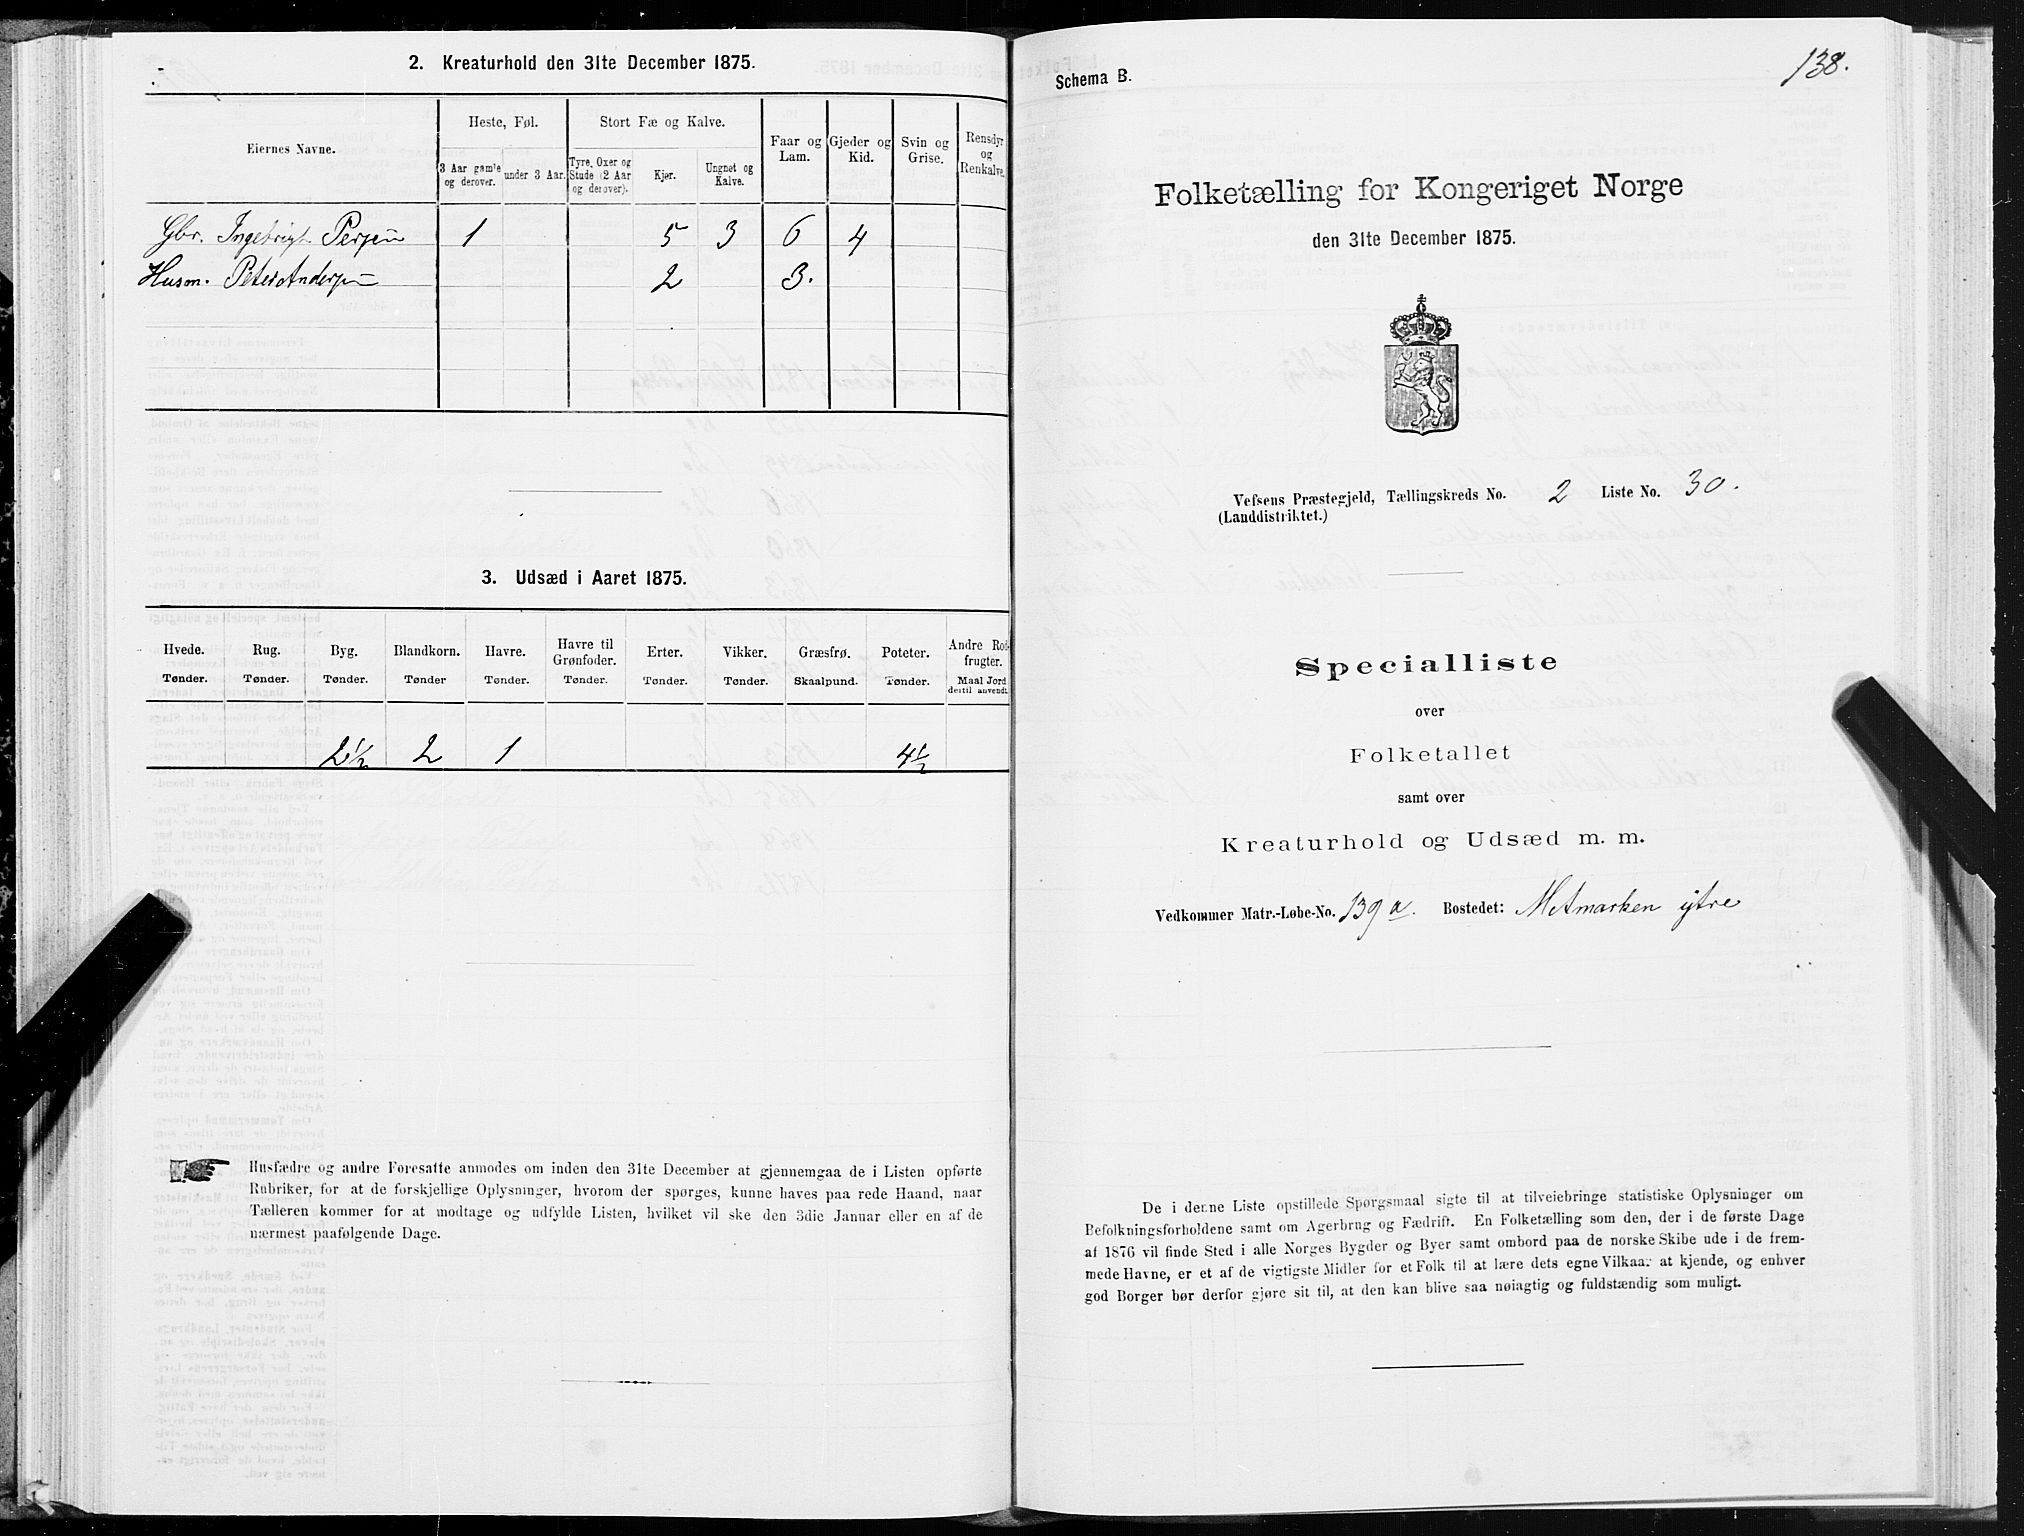 2. Kreaturhold den 31te December 1875.
Eiernes Navne.
Heste, Føl.
Stort Fæ og Kalve.
Faar og Lam.
Gjeder og Kid.
Svin og Grise.
Rensdyr og Renkalve.
3 Aar gamle og derover.
under 3 Aar.
Tyre, Oxer og Stude (2 Aar og derover).
Kjør.
Ungnøt og Kalve.
Gbr. Ingebrigt Persen 1 5 3 6 4
Husm. Peter Andersen 2 3.
3. Udsæd i Aaret 1875.
Hvede. Rug. Byg. Blandkorn. Havre. Havre til Grønfoder. Erter. Vikker. Græsfrø. Poteter. Andre Rodfrugter.
Tønder. Tønder. Tønder. Tønder Tønder. Tønder. Tønder. Tønder. Skaalpund. Tønder. Maal Jord dertil anvendt.
2½ 2 1 4½
Husfædre og andre Foresatte anmodes om inden den 31te December at gjennemgaa de i Listen opførte
Rubriker, for at de forskjellige Oplysninger, hvorom der spørges, kunne haves paa rede Haand, naar
Tælleren kommer for at modtage og udfylde Listen, hvilket vil ske den 3die Januar eller en af de
nærmest paafølgende Dage.
Schema B.
138.
Folketælling for Kongeriget Norge
den 31te December 1875.
Vefsens Præstegjeld, Tællingskreds No. 2 Liste No. 30.
(Landdistriktet.)
Specialliste
over
Folketallet
samt over
Kreaturhold og Udsæd m. m.
Vedkommer Matr.-Løbe-No. 139 a. Bostedet: Metmarken ytre
De i denne Liste opstillede Spørgsmaal sigte til at tilveiebringe statistiske Oplysninger om
Befolkningsforholdene samt om Agerbrug og Fædrift. En Folketælling som den, der i de første Dage
af 1876 vil finde Sted i alle Norges Bygder og Byer samt ombord paa de norske Skibe ude i de frem-
mede Havne, er et af de vigtigste Midler for et Folk til at lære dets egne Vilkaar at kjende, og enhver
god Borger bør derfor gjøre sit til, at den kan blive saa nøiagtig og fuldstændig som muligt.